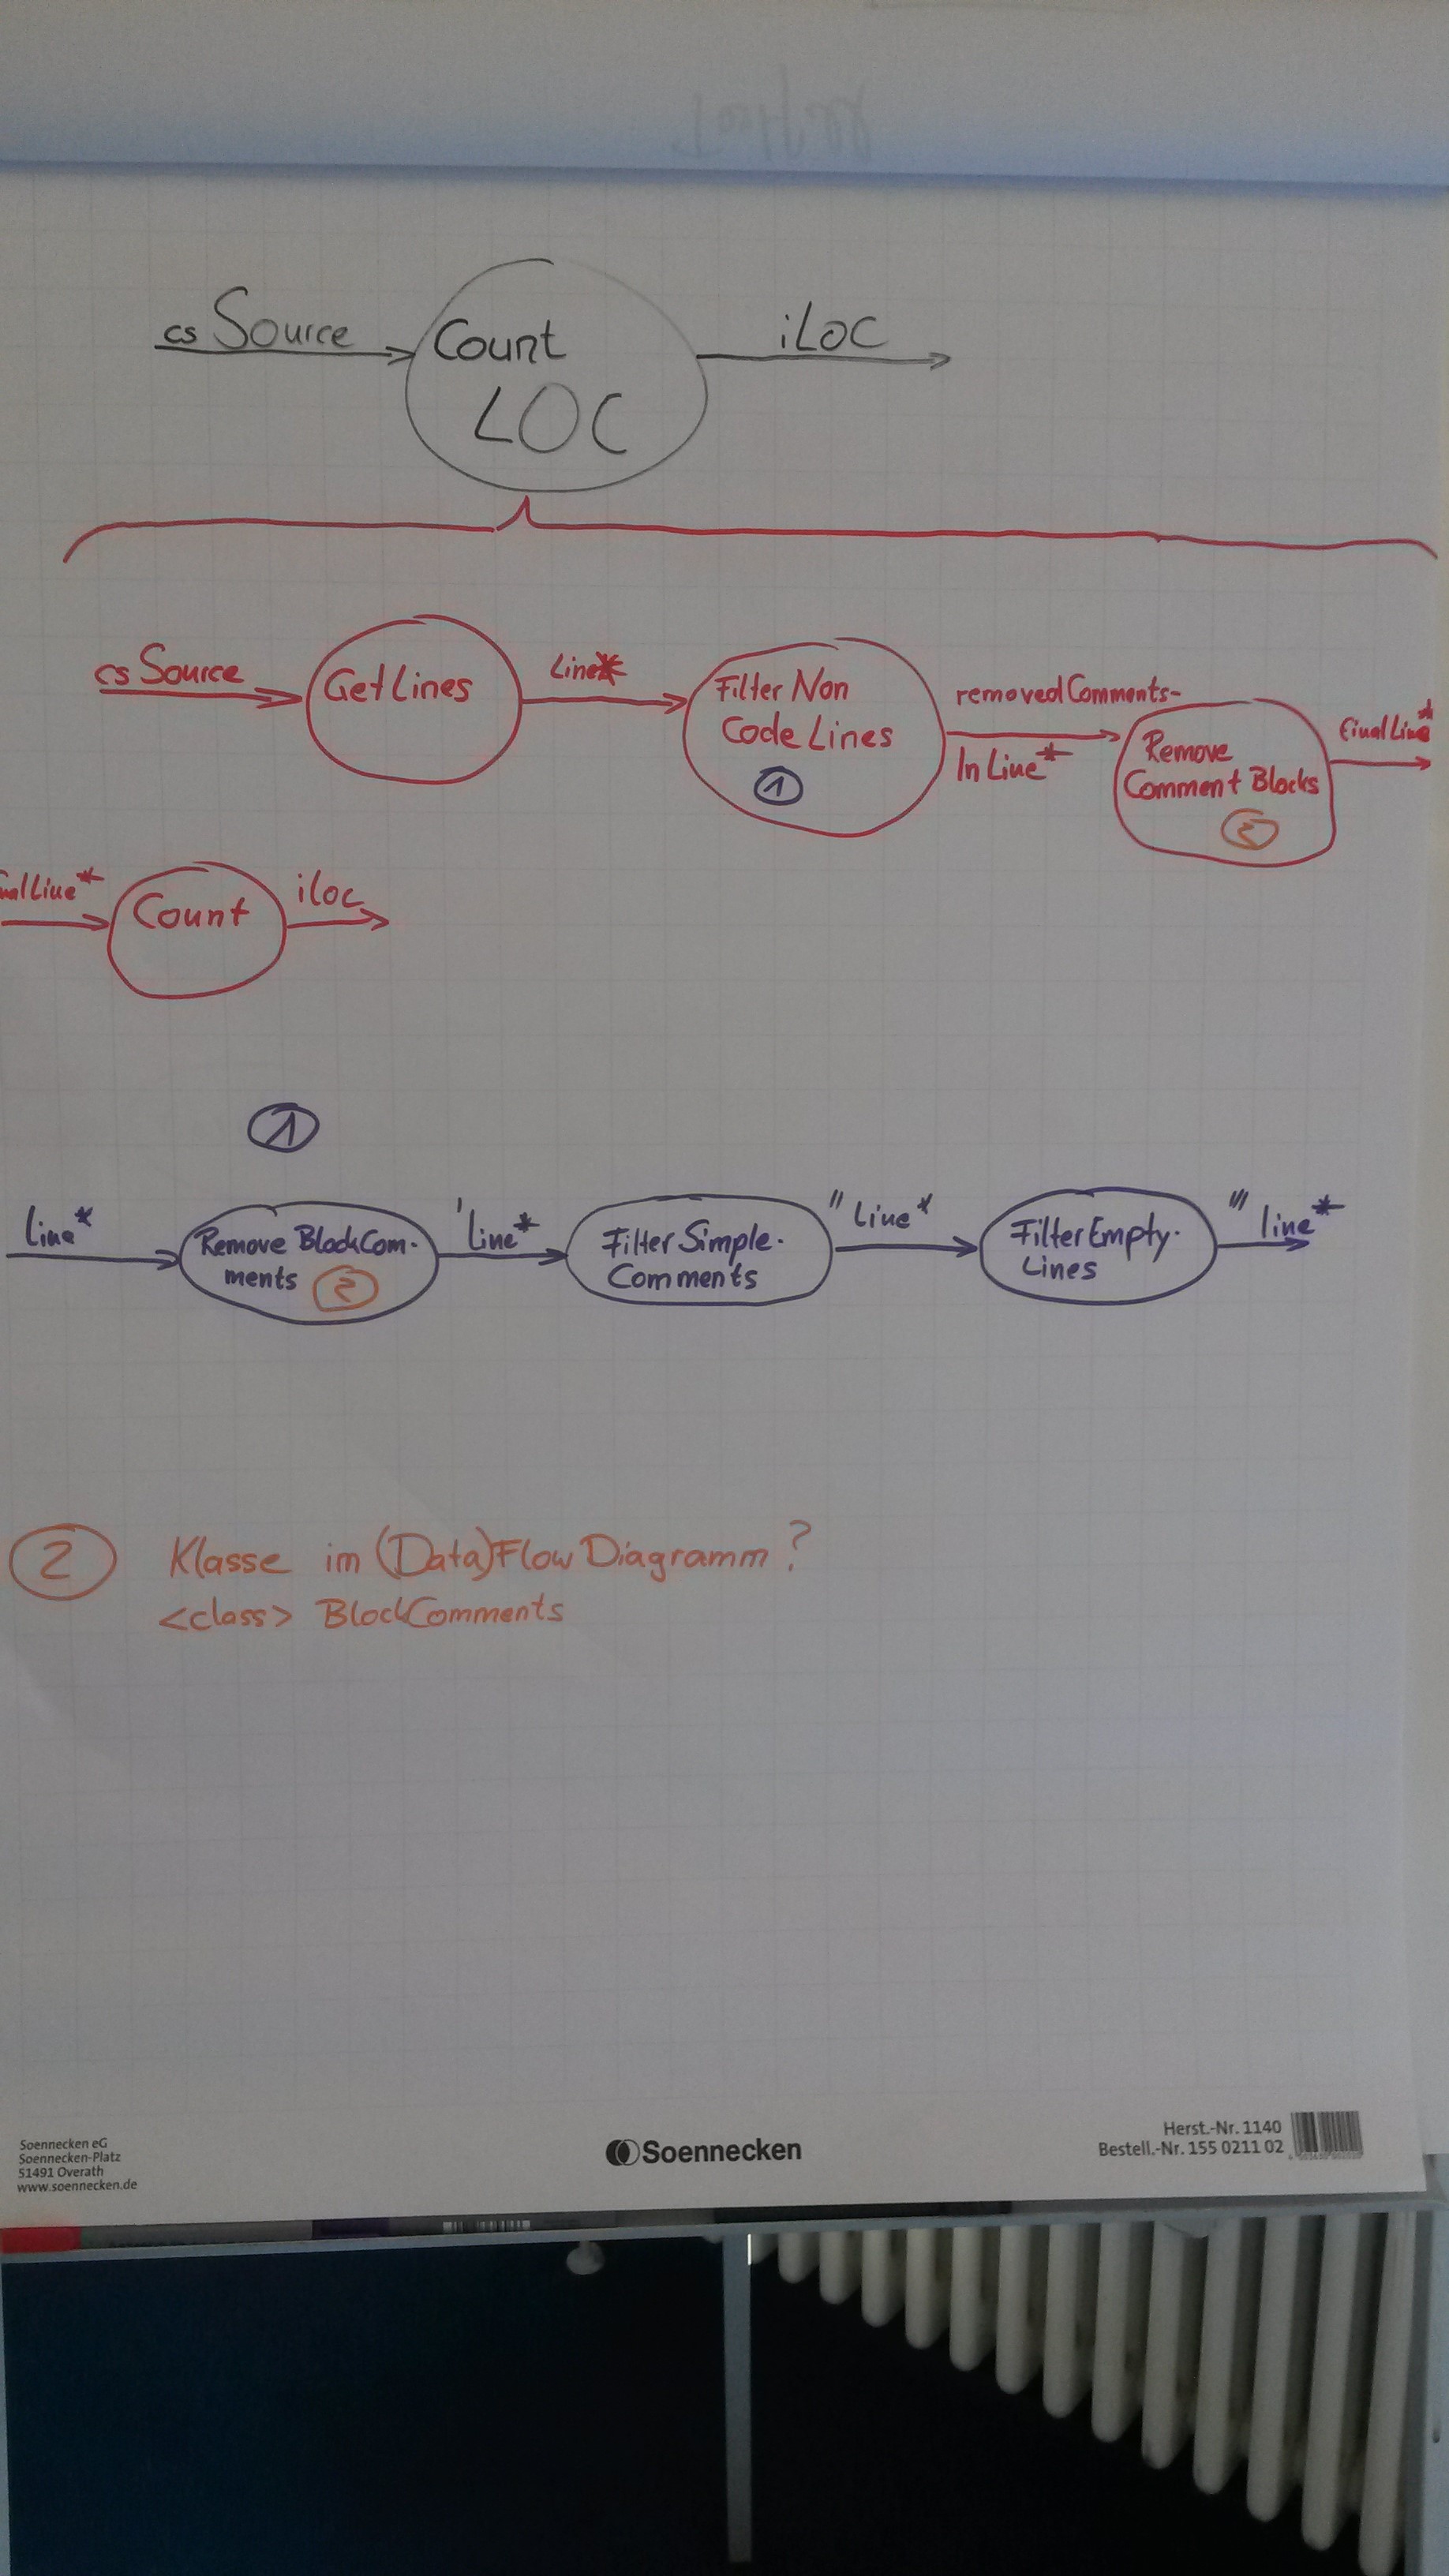 cs Source
Count
LOC
iLOC
cs Source
GetLines
Line*
Filter Non
Code Lines
1
removedComments-
In Line*
Remove
Comment Blocks
2
final Line*
nalLine*
Count
iloc
1
Line*
Remove BlockCom-
ments 2
'Line*
Filter Simple-
Comments
"Line*
FilterEmpty-
Lines
"'line*
2 Klasse im (Data)Flow Diagramm?
<class> BlockComments
Soennecken eG
Soennecken-Platz
51491 Overath
www.soennecken.de
Soennecken
Herst.-Nr. 1140
Bestell.-Nr. 155 0211 02